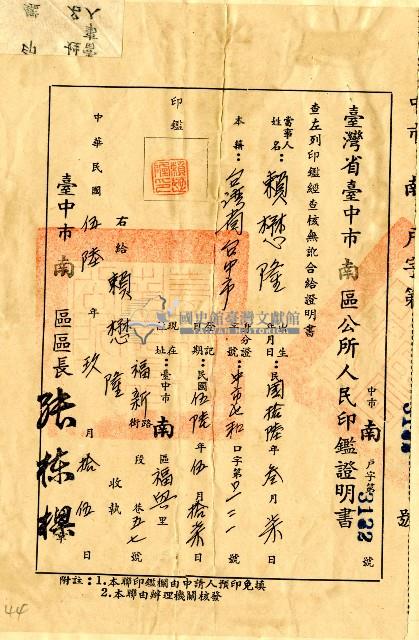 臺灣省臺中市南區公所人民印鑑證明書
中市南戶字第3132號
查左列印鑑經查核無訛合給證明書
當事人姓名：賴懋隆
出生年月日：民國拾陸年叁月柒日
本籍：台灣省台中市
身分證字號：中市七和口字第
登記日期：民國伍陸年伍月拾柒日
現在住址：臺中市南區福興里
福新路街段巷五七號
印鑑
右給賴懋隆收執
臺中市南區區長張棟樑
中華民國伍陸年玖月拾伍日
附註：1.本聯印鑑欄由申請人預印免填
2.本聯由辦理機關核發
國史館臺灣文獻館
TAIWAN HISTORICA
44